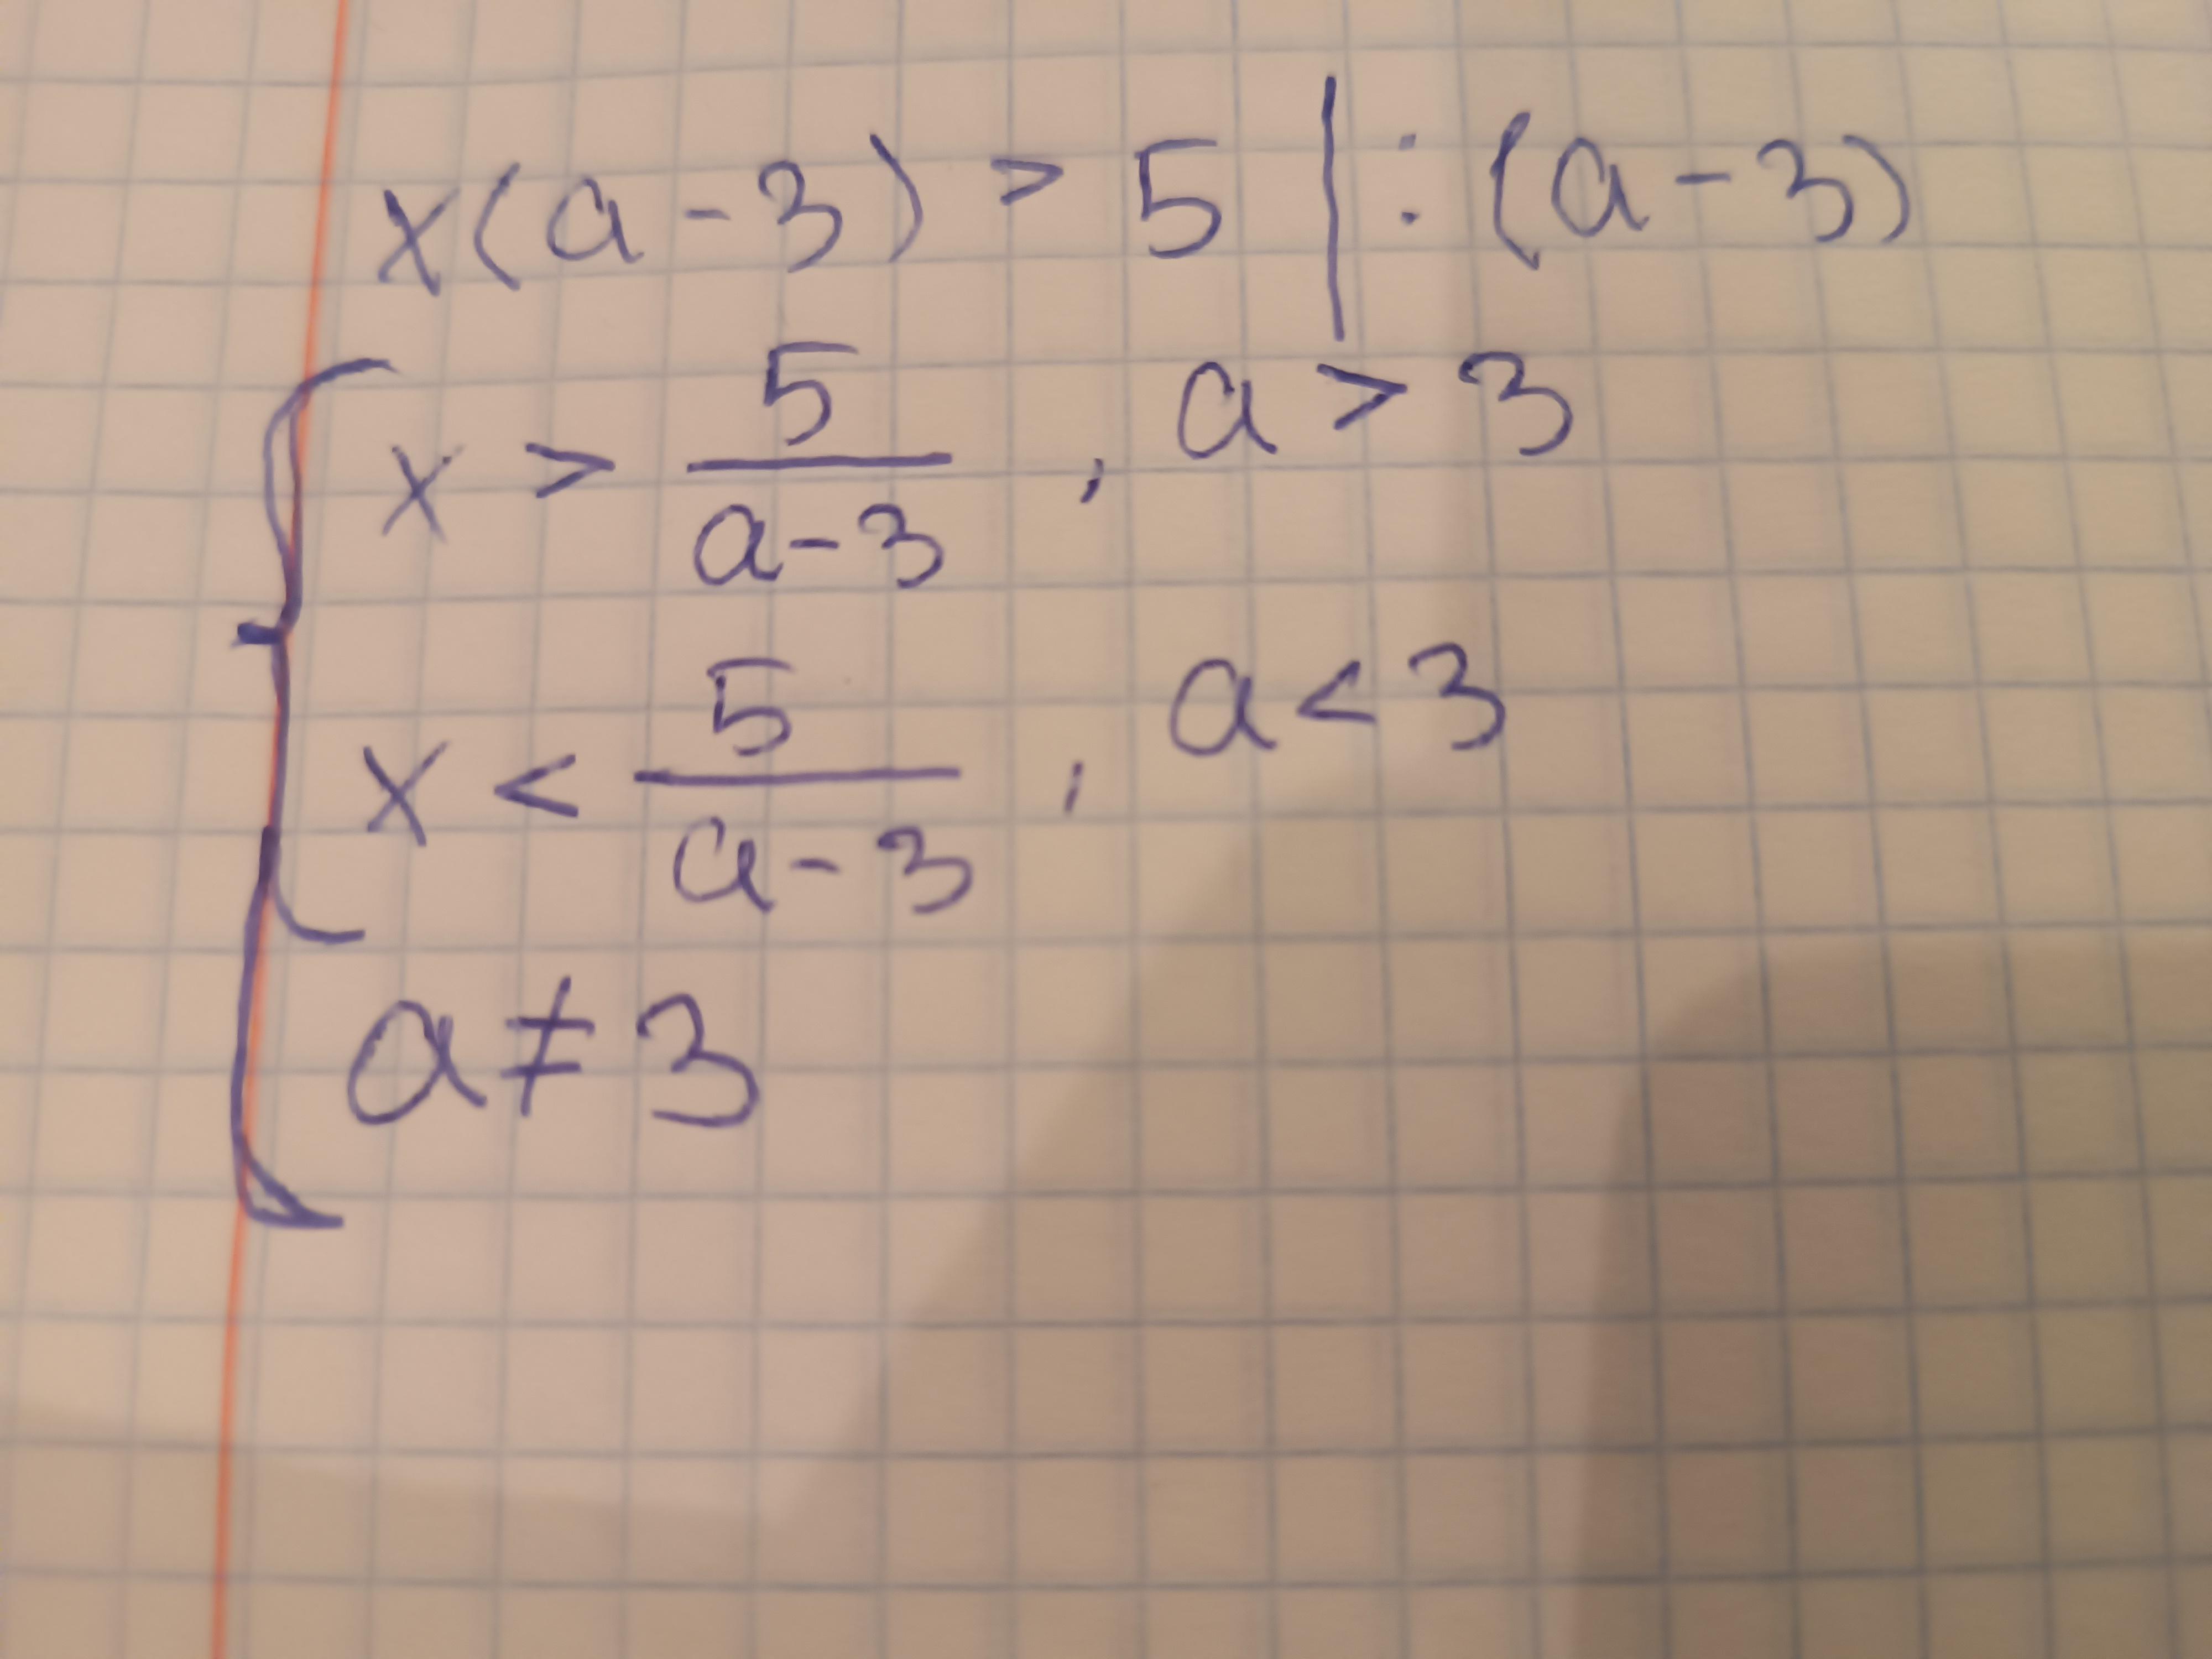 x(a-3) > 5 | : (a-3)
x > 5/(a-3) , a > 3
x < 5/(a-3) , a < 3
a ≠ 3